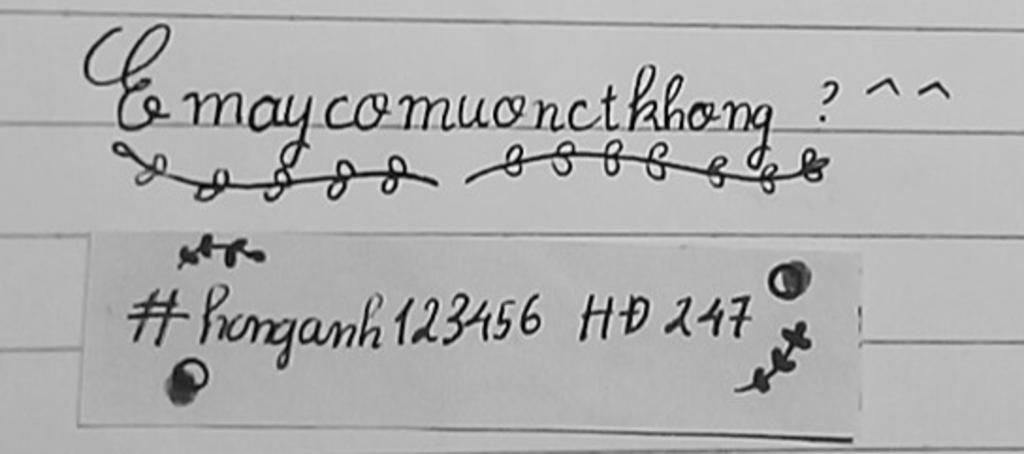 Emaycomuonctkhong ? ^ ^
#honganh123456 HĐ 247